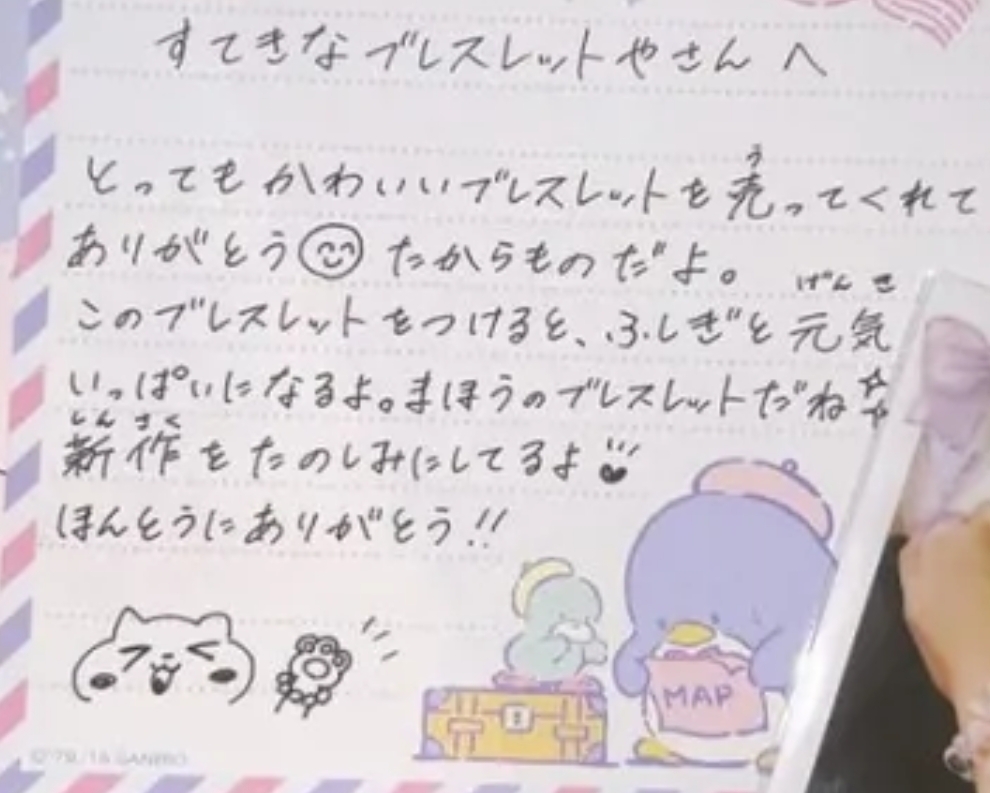 すてきなブレスレットやさんへ
う
とってもかわいいブレスレットを売ってくれて
ありがとう たからものだよ。
げんき
このブレスレットをつけると、ふしぎと元気
いっぱいになるよ。まほうのブレスレットだね☆
しんさく
新作をたのしみにしてるよ
ほんとうにありがとう!!
MAP
©'79,'16 SANRIO